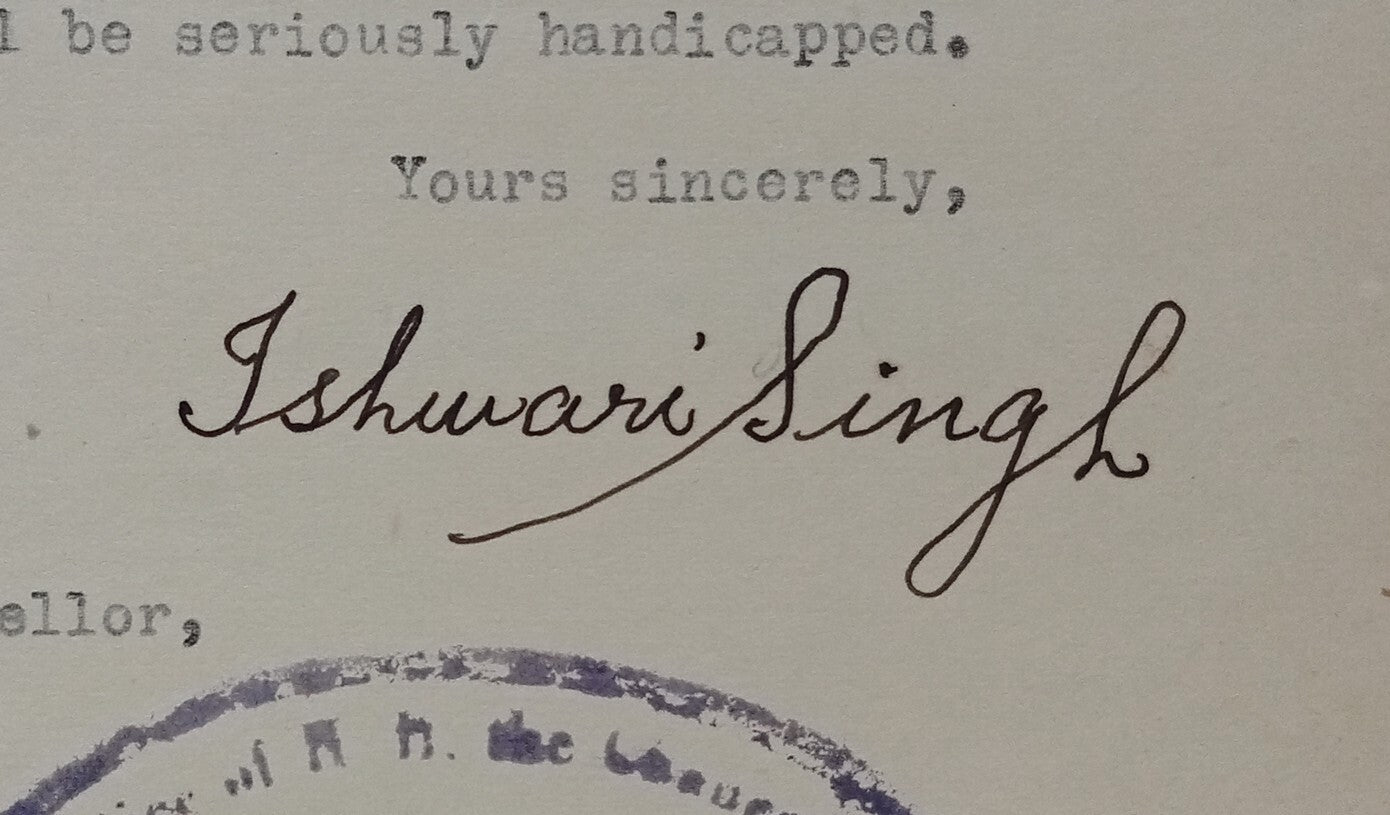 be seriously handicapped.
Yours sincerely,
Ishwari Singh
ellor,
of H. H. the